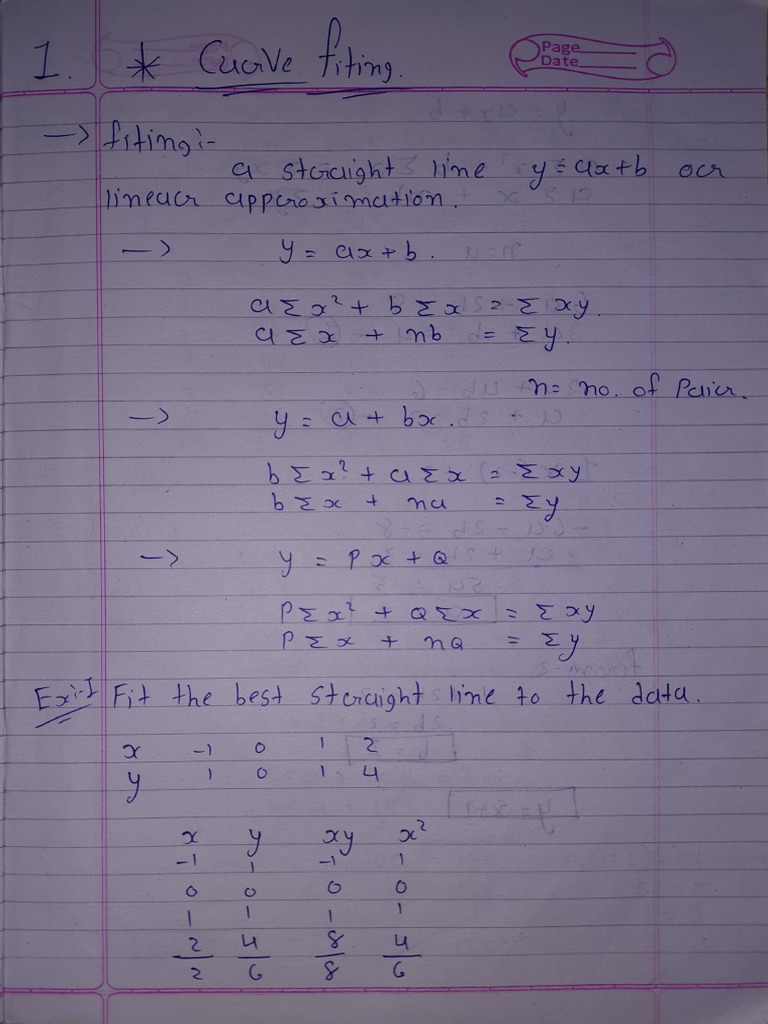 1. * Curve fiting.
Page
Date
-> fiting:-
a straight line y=ax+b or
linear approximation.
-> y = ax + b.
a Σ x² + b Σ x = Σ xy.
a Σ x + nb = Σ y.
n = no. of Pair.
-> y = a + bx.
b Σ x² + a Σ x = Σ xy
b Σ x + na = Σ y
-> y = P x + Q
P Σ x² + Q Σ x = Σ xy
P Σ x + nQ = Σ y
Ex:-1 Fit the best straight line to the data.
x -1 0 1 2
y 1 0 1 4
x y xy x²
-1 1 -1 1
0 0 0 0
1 1 1 1
2 4 8 4
2 6 8 6